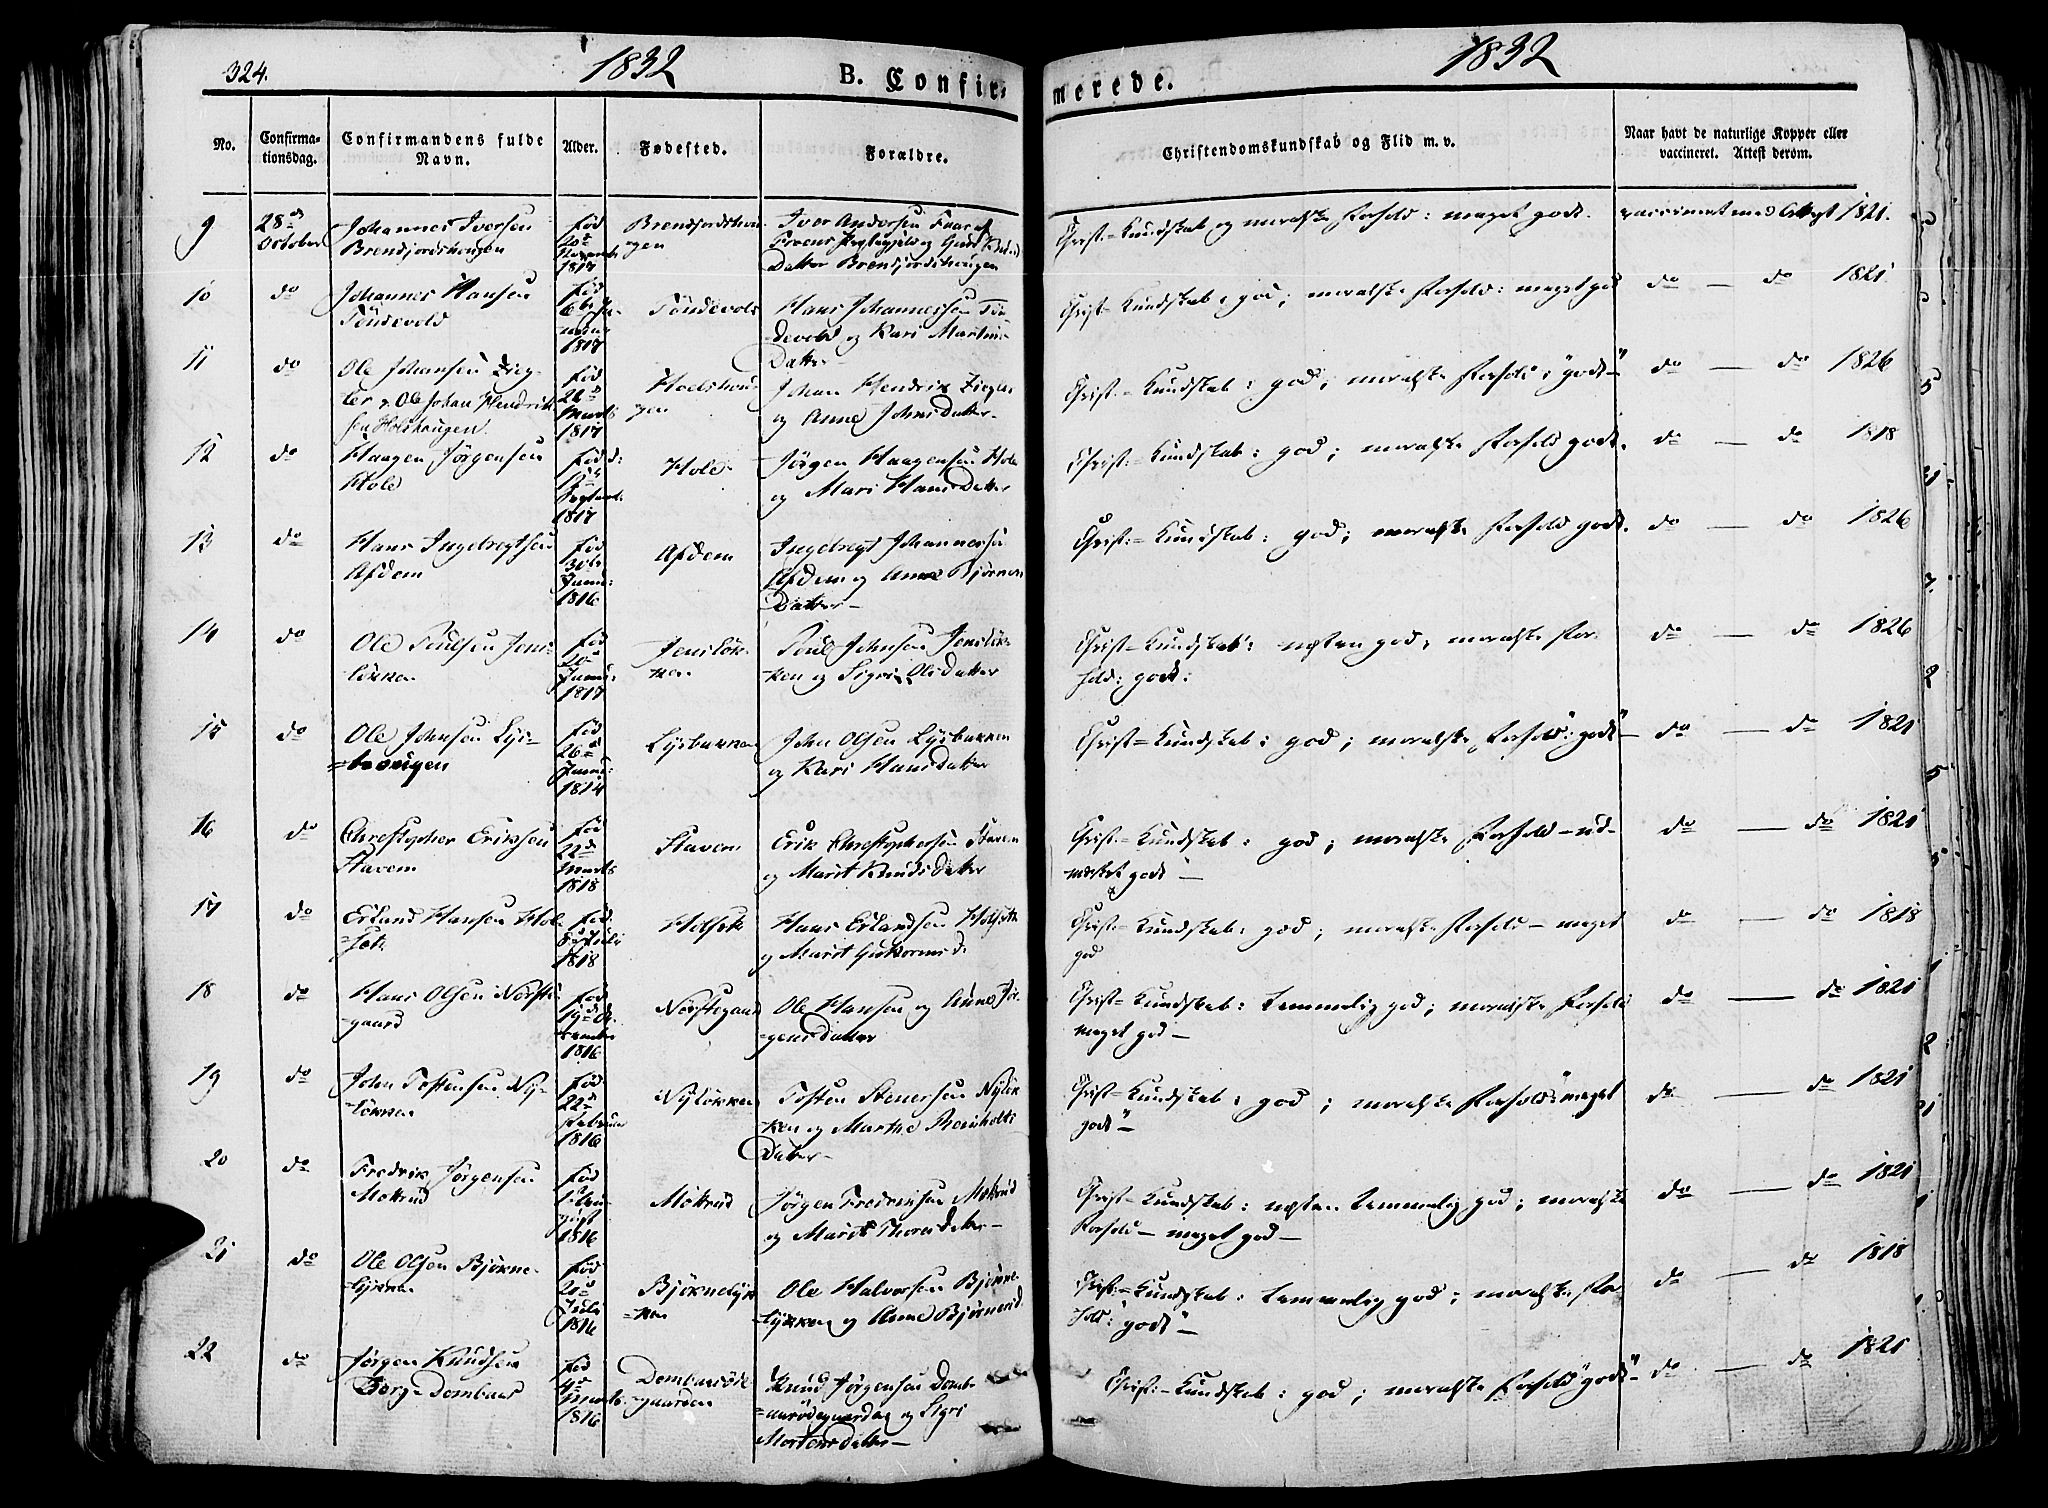 324.
1832
B. Confir-
merede.
1832
No.
Confirma-
tionsdag.
Confirmandens fulde
Navn.
Alder.
Fødested.
Forældre.
Christendomskundskab og Flid m. v.
Naar havt de naturlige Kopper eller
vaccineret. Attest derom.
9
28de
October
Johannes Iversen
Brendjordshougen
fød
1817
Brendjordshou-
gen
Iver Andersen
Datter Brendjordshougen
Christ:-Kundskab og moralske Forhold: meget godt.
vaccineret med Attest 1821.
10
do
Johannes Hansen
Töndevold
fød
1817
Töndevold
Hans Johannessen Tön-
devold og Kari Martins
Datter
Christ-Kundskab: god; moralske Forhold: meget god
do — do 1821
11
do
Ole Johansen Zieg-
ler, Ole Johan Hendrik-
sen Holshougen.
fød
26de
Marts
1817
Hoelshou-
gen
Johan Hendrik Ziegler
og Anne JohnsDatter-
Christ-Kundskab: god; moralske Forhold: "godt"
do — do 1826
12
do
Haagen Jörgensen
Hole
fød
1817
Hole
Jörgen Haagensen Hole
og Mari HansDatter
Christ:-Kundskab: god; moralske Forhold godt.
do — do 1818
13
do
Hans Ingebregtsen
Afdem
fød
30te
1816
Afdem
Ingebregt Johannessen
Afdem og Anne Björns
Datter-
Christ:-Kundskab: god; moralske Forhold godt.
do — do 1826
14
do
Ole Poulsen Jens-
lökken
fød
1817
Jenslök-
ken
Poul Johnsen Jenslök-
ken og Sigri OlsDatter
Christ-Kundskab: næsten god; moralske For-
hold: godt:
do — do 1826
15
do
Ole Johnsen Lys-
=hougen
fød
26de
1814
Lysbakken
John Olsen Lysbakken
og Kari HansDatter
Christ-Kundskab: god; moralske Forhold: "godt"
do — do 1821
16
do
Christopher Eriksen
Stavem
fød
22de
Marts
1818
Stavem
Erik Christophersen Stavem
og Marit KnudsDatter
Christ:-Kundskab: god; moralske Forhold - ud-
mærket godt -
do — do 1821
17
do
Erland Hansen Hol-
set
fød
Juli
1818
Holset
Hans Erlandsen Holseth
og Marit Guttorms d.
Christ:-Kundskab: god; moralske Forhold - meget
god
do — do 1818
18
do
Hans Olsen Nörste-
gaard
fød
19de
1816
Nörstegaard
Ole Hansen og Anne Jör-
gensdatter
Christ-Kundskab: temmelig god; moralske Forhold
meget god -
do — do 1821
19
do
John Tostensen Ny-
lökken
fød
22de
Februar
1816
Nylökken
Tosten Stenersen Nylök
ken og Marthe Reinholts
Datter-
Christ-Kundskab: god; moralske Forhold: "meget
godt"-
do — do 1821
20
do
Fredrik Jörgensen
Mokrud
fød
1816
Mokrud
Jörgen Fredriksen Mokrud
og Marit ThoresDatter-
Christ-Kundskab: næsten temmelig god; moralske
Forhold - meget god -
do — do 1821
21
do
Ole Olsen Björne-
lykken
fød
2de
Juli
1816
Björnelyk
=ken
Ole Halvorsen Björne-
lykken og Anne Björnsd.
Christ:-Kundskab: temmelig god; moralske For
hold: "godt"-
do — do 1818
22
do
Jörgen Knudsen
Dombaas
fød
Marts
1816
Dombaasöde
gaarden
Knud Jörgensen Domb-
=aasödegaarden og Sigri
MortensDatter-
Christ:-Kundskab: god; moralske Forhold "godt"-
do — do 1821